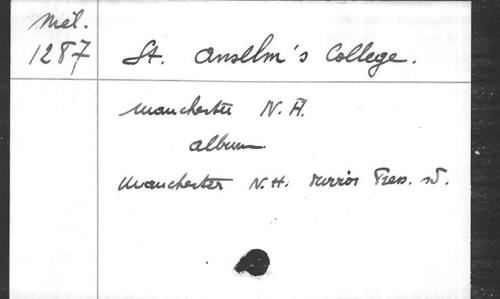 Mél.
1287
St. Anselm's College.
Manchester N. H.
album
Manchester N.H. Press.